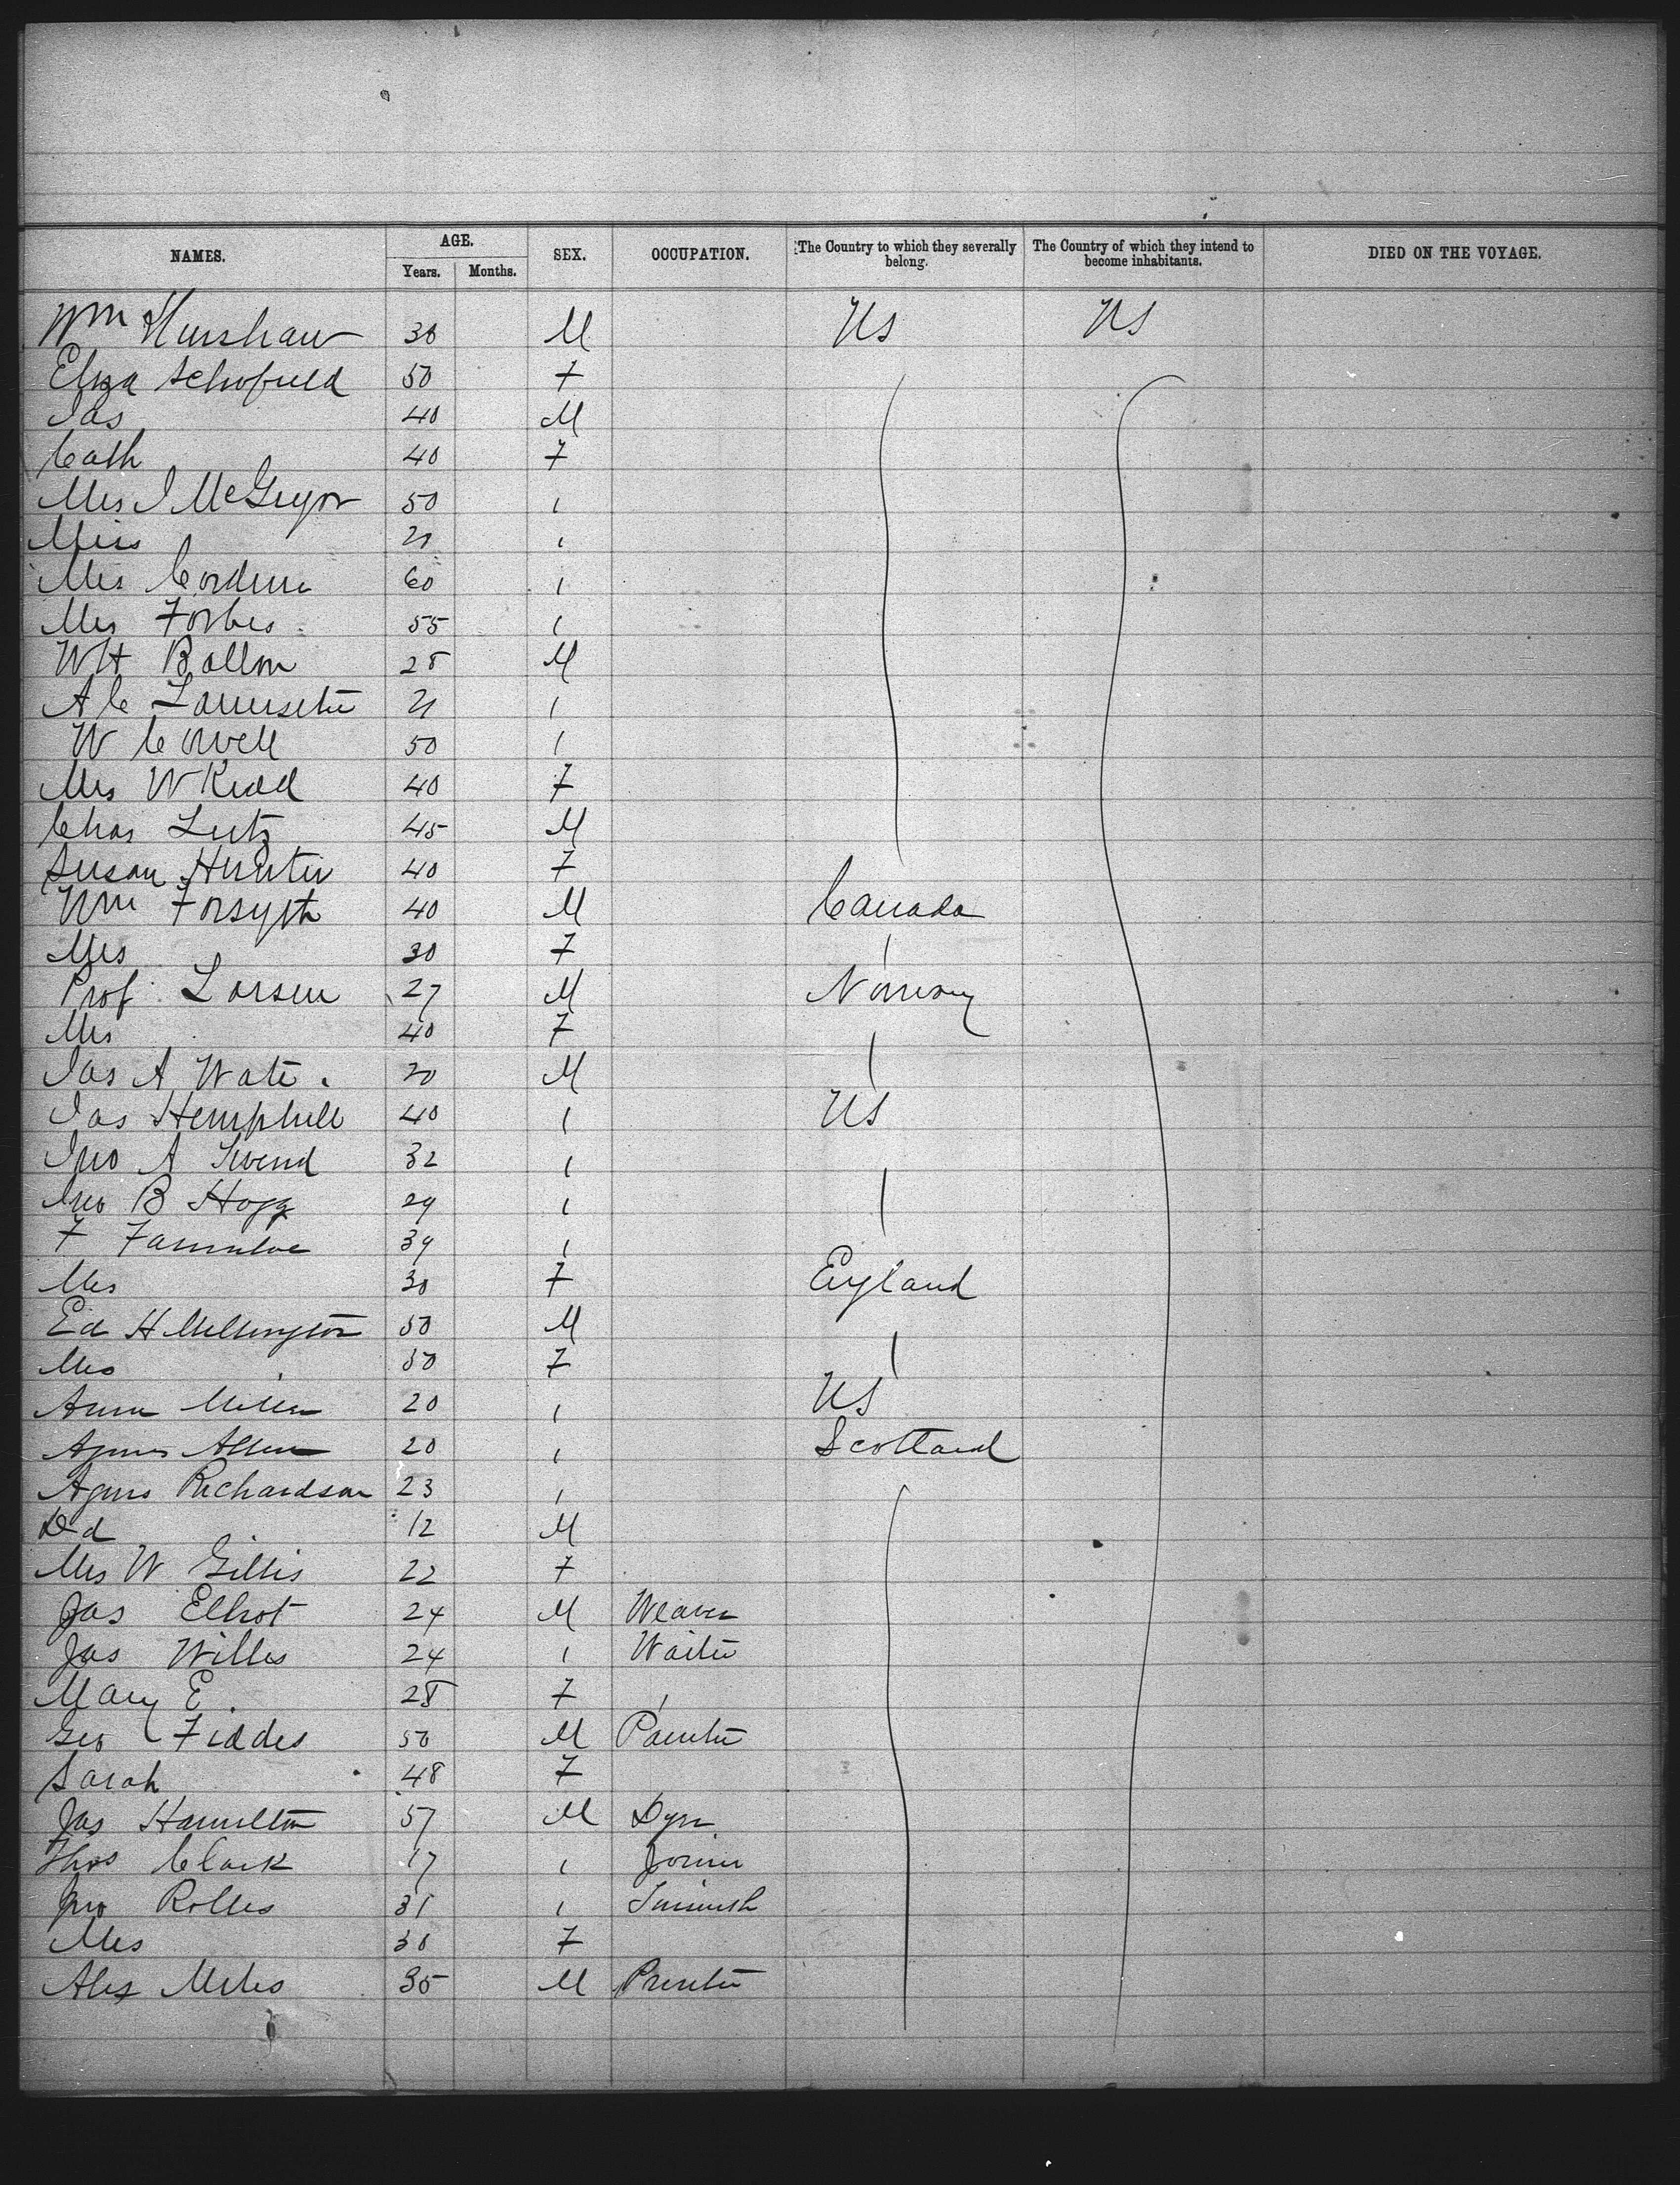 NAMES. AGE. SEX. OCCUPATION. The Country to which they severally belong. The Country of which they intend to become inhabitants. DIED ON THE VOYAGE.
Years. Months.
Wm 30 M US US
Eliza Schofield 50 F
Jas 40 M
Cath 40 F
Mrs J McGregor 50 "
Miss 21 "
Mrs 60 "
Mrs Forbes 55 "
WH 28 M
A C 21 "
W 50 "
Mrs W Kidd 40 F
Chas Lutz 45 M
Susan Hunter 40 F
Wm Forsyth 40 M Canada
Mrs 30 F "
Prof Larsen 27 M Norway
Mrs 40 F
Jas A 20 M "
Jas Hemphill 40 " US
Jno A 32 "
Jno B Hogg 29 " "
F 39 "
Mrs 30 F England
Ed H 50 M
Mrs 50 F "
20 " US
Agnes Allen 20 " Scotland
Agnes Richardson 23 "
12 M
Mrs W Gillis 22 F
Jas Elliot 24 M Weaver
Jas Willis 24 " Waiter
Mary E. 28 F "
Geo Fiddes 50 M Painter
Sarah 48 F
Jas Hamilton 57 M Dyer
Thos Clark 17 " Joiner
Jno 31 " Tinsmith
Mrs 30 F
Alex 35 M Printer